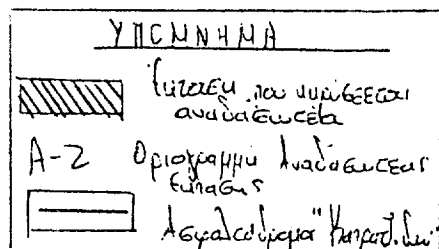 ΥΠΟΜΝΗΜΑ
Έκτασις που κηρύσσεται
αναδασωτέα
Α-Ζ Οριογραμμή Αναδασώσεως
έκτασης
Ασφαλτόδρομο